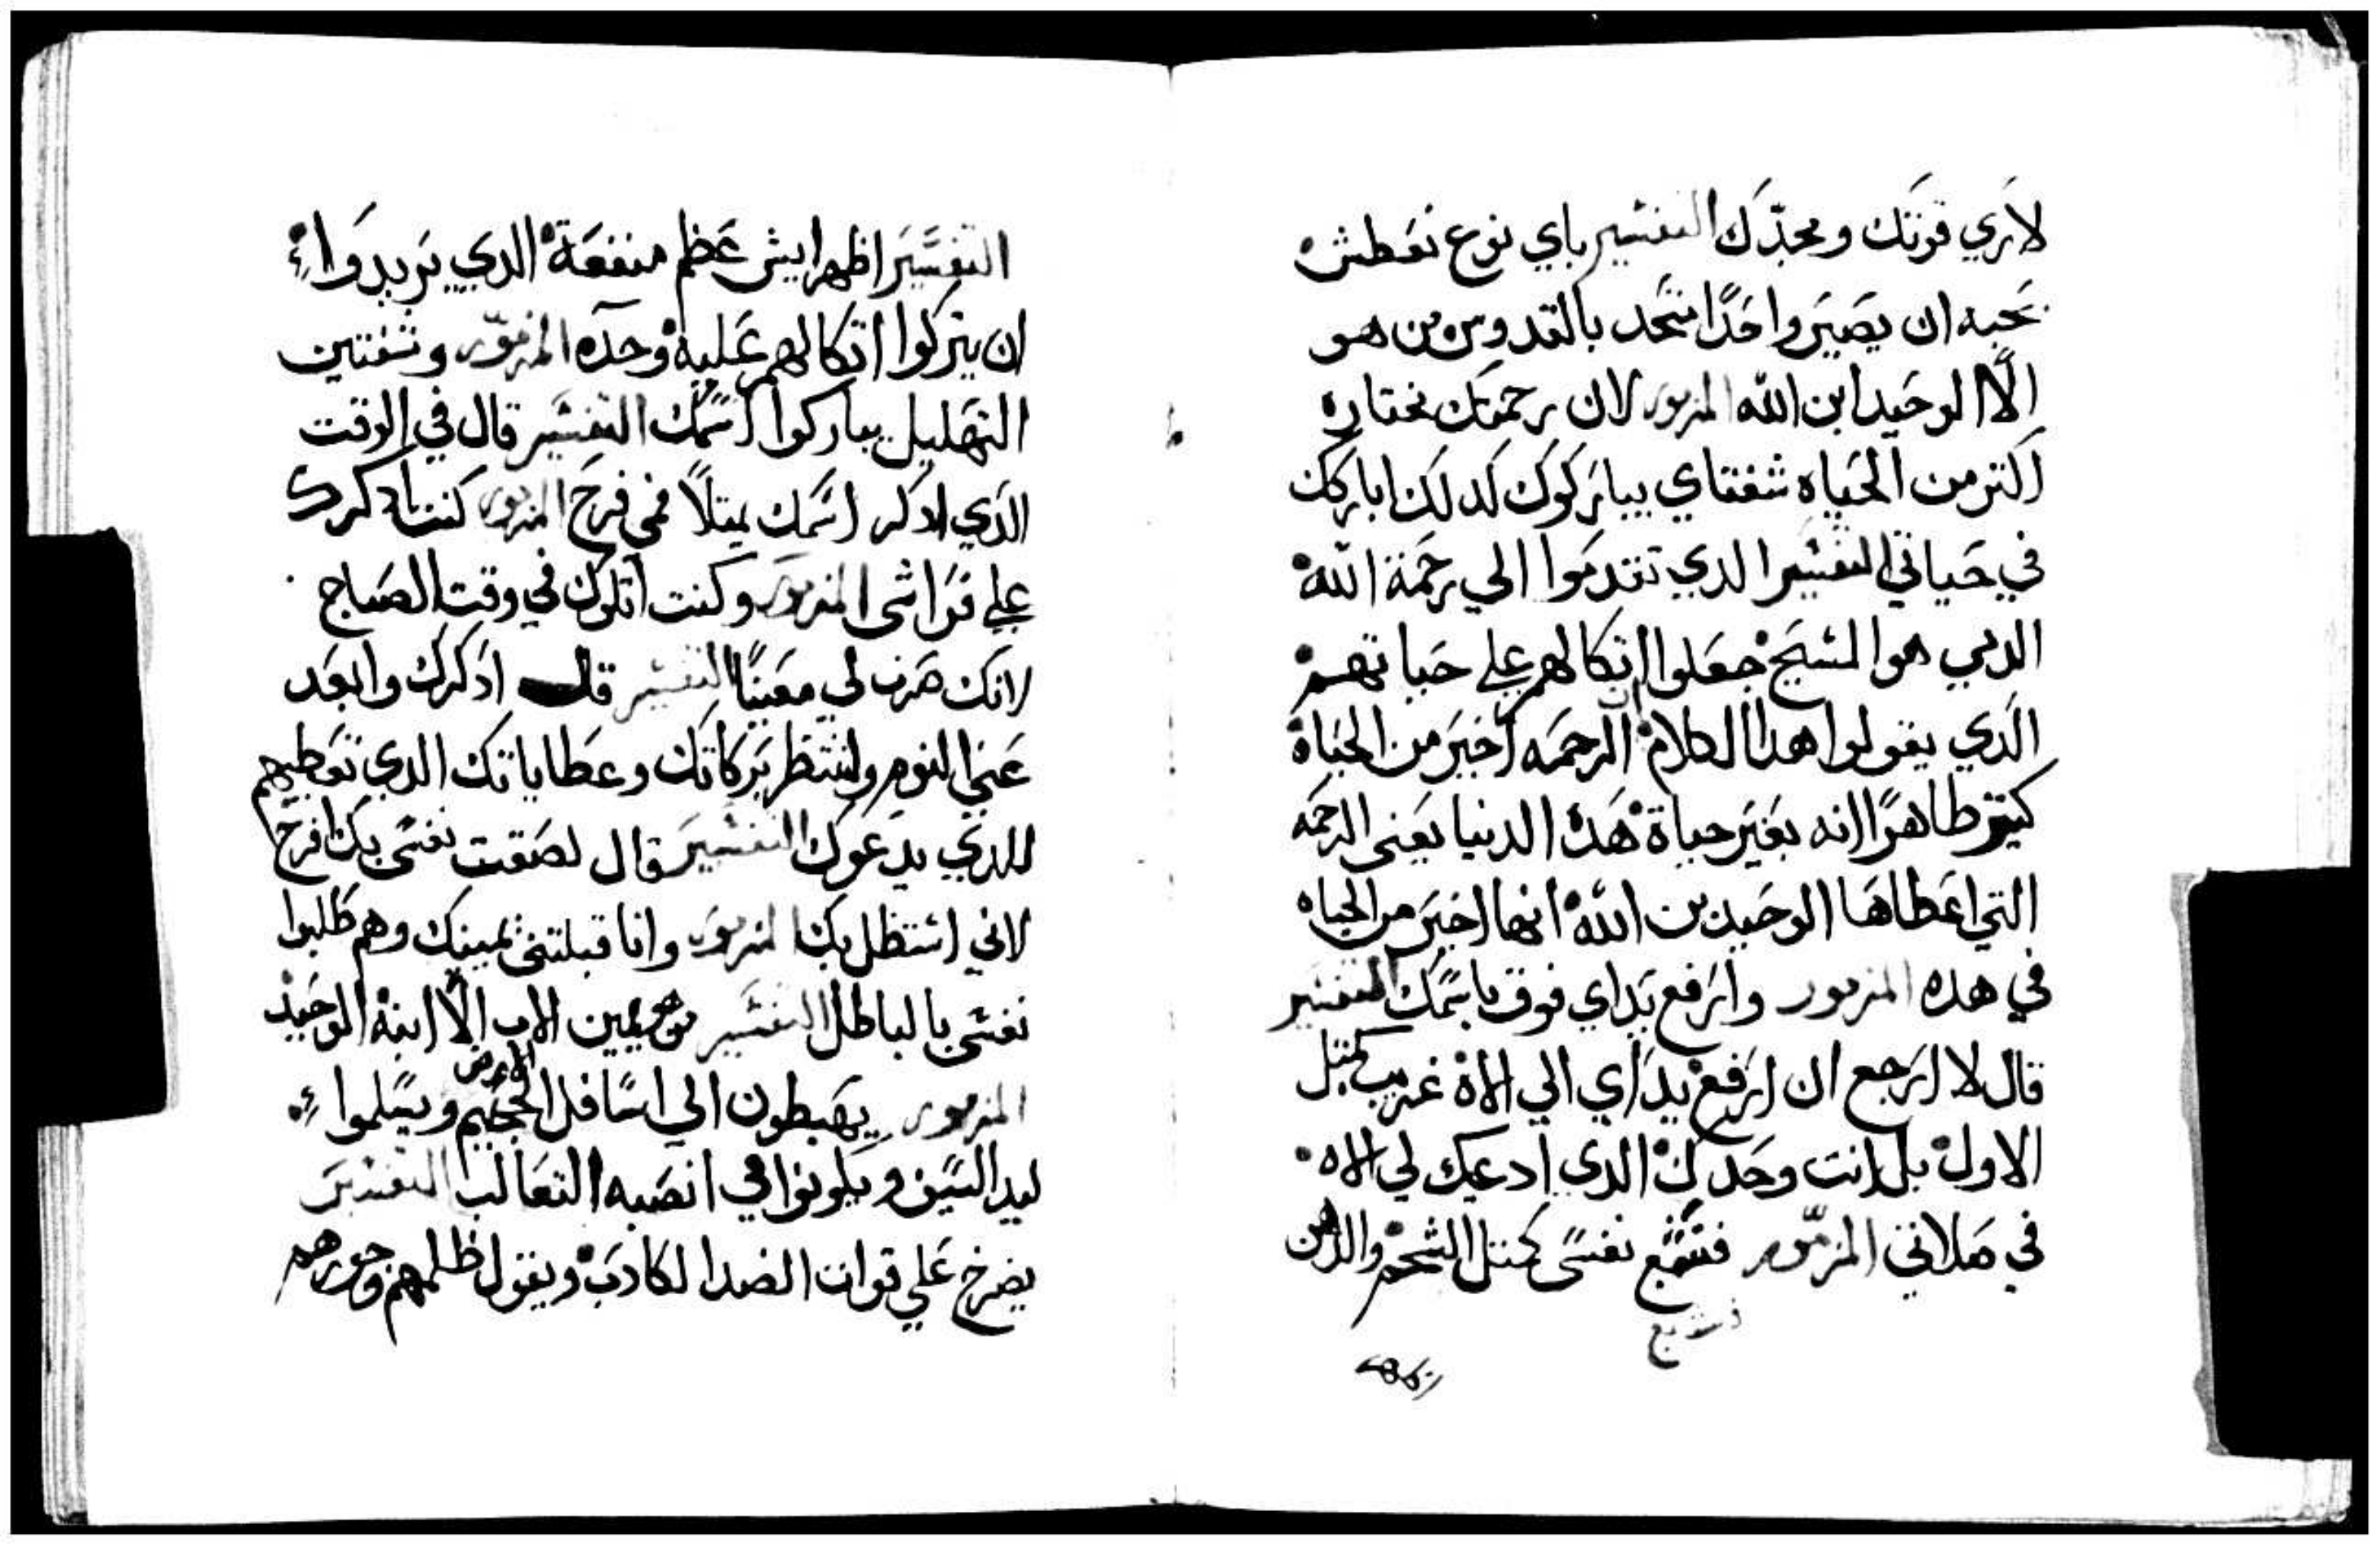 لاري قوتك ومجدك التفسير باي نوع تعطش
تحبه ان يصير واحدًا متحد بالقدوس من هو
الّا الوحيد ابن الله المزمور لان رحمتك مختاره
اكتر من الحياه شفتاي يباركوك كدلك اباركك
في حياتي التفسير الدي تقدموا الي رحمة الله
الدي هو المسيح جعلوا اتكالهم علي حياتهم
الدي يقولوا هدا الكلام ان الرحمه اخير من الحياة
كيتر ظاهرًا انه بغير حياة هده الدنيا يعني الرحمه
التي اعطاها الوحيد بن الله انها اخير من الحياه
في هده المزمور وارفع يداي فوق باسمك التفسير
قال لا ارجع ان ارفع يداي الي الاه غريب كمتل
الاول بل انت وحدك الدي ادعيك لي الاه
في صلاتي المزمور فتشبع نفسي كمتل الشحم والدهن
فتشبع
التفسير اظهر ايش عظم منفعة الدي يريدوا
ان يتركوا اتكالهم عليه وحده المزمور وشفتين
التهليل يباركوا اسمك التفسير قال في الوقت
الدي ادكر اسمك يمتلا فمي فرح المزمور كنت ادكرك
علي فراشي المزمور وكنت اتلوك في وقت الصباح
لانك صرت لي معينًا التفسير قال ادكرك وابعد
عني النوم وانتظر بركاتك وعطاياتك الدي تعطيهم
للدي يدعوك التفسير قال لصقت نفسي بك افرح
لاني استظل بك المزمور وانا قبلتني يمينك وهم طلبوا
نفسي بالباطل التفسير من هو يمين الاب الّا ابنه الوحيد
المزمور يهبطون الي اسافل الجحيم الارض ويسلموا
ليد السيف ويكونوا في انصبه التعالب التفسير
يصرخ علي قوات الضد الكادبه ويقول ظلمهم وجورهم